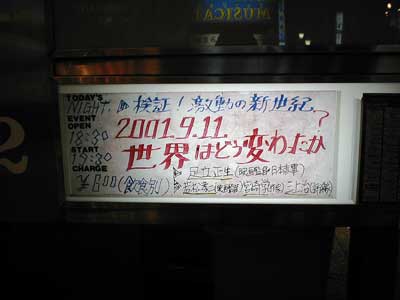 MUSICAL
TODAY'S
NIGHT
EVENT
OPEN
18:30
START
19:30
CHARGE
¥600(飲食別)
検証!激動の新世紀
2001.9.11
世界はどう変わったか?
足立正生(映画監督/日本赤軍)
若松孝二(映画監督)宮崎学(作家)三上治(評論)
2